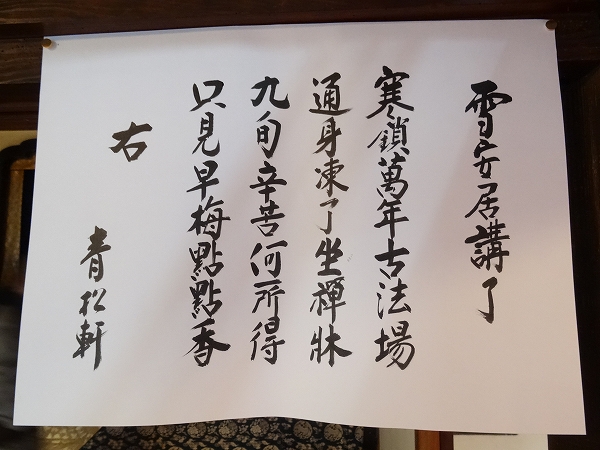 雪安居講了
寒鎖萬年古法場
通身凍了坐禪牀
九旬辛苦何所得
只見早梅點點香
右
青松軒